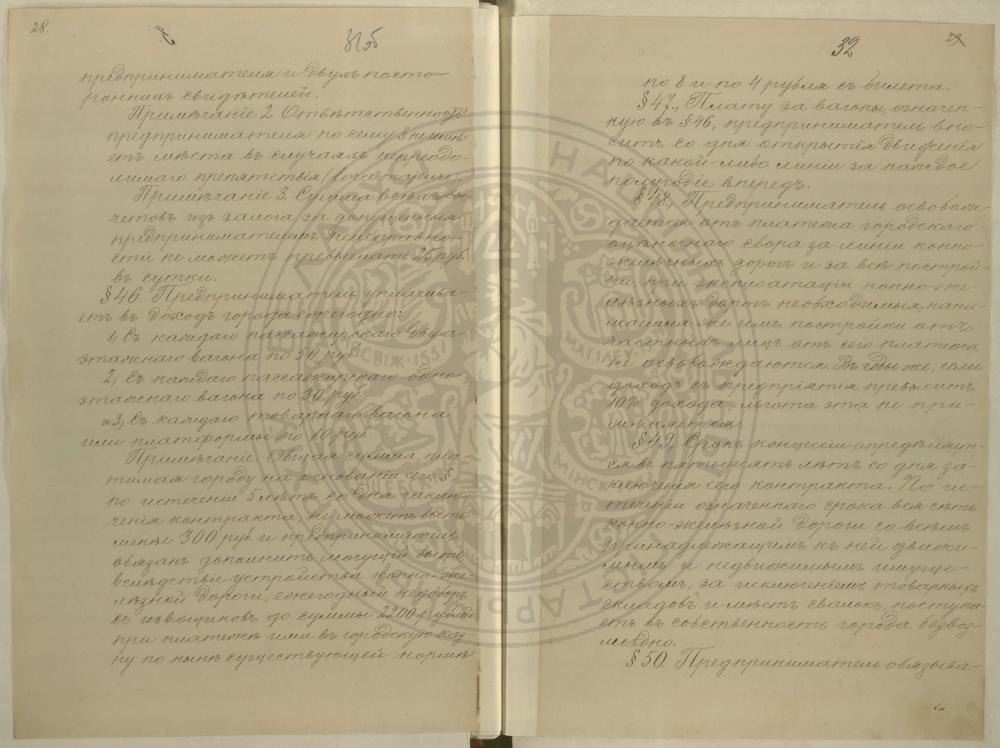 28.
31об
предпринимателя и двухъ посто-
роннихъ свидѣтелей.
Примѣчаніе 2. Отвѣтственность
предпринимателя по сему § не имѣ-
етъ мѣста въ случаяхъ непреодо-
лимаго препятствія (force majeure).
Примѣчаніе 3. Сумма всѣхъ вы-
четовъ изъ залога, за допущенныя
предпринимателемъ неисправно-
сти не можетъ превышать 25 руб.
въ сутки.
§ 46. Предприниматель уплачива-
етъ въ доходъ города ежегодно:
1, Съ каждаго пассажирскаго двухъ-
этажнаго вагона по 50 руб.
2, Съ каждаго пассажирскаго одно-
этажнаго вагона по 30 руб.
и 3, Съ каждаго товарнаго вагона
или платформы по 10 руб.
Примѣчаніе. Общая сумма пла-
тимая городу на основаніи сего §,
по истеченіи 5 лѣтъ со дня заклю-
ченія контракта, не можетъ быть
менѣе 300 руб. и предприниматель
обязанъ дополнить могущій быть
вслѣдствіе устройства конно-же-
лѣзной дороги, ежегодный недоборъ
съ извощиковъ до суммы 2200 рублей
при платежѣ ими въ городскую каз-
ну по нынѣ существующей нормѣ
32
29
по 8 и по 4 рубля съ билета.
§ 47, Плату за вагоны, означен-
ную въ § 46, предприниматель вно-
ситъ со дня открытія движенія
по какой-либо линіи за каждое
полугодіе впередъ.
§ 48, Предприниматель освобож-
дается отъ платежа городского
оцѣночнаго сбора за линіи конно-
желѣзныхъ дорогъ и за всѣ построй-
ки при эксплоатаціи конно-же-
лѣзныхъ дорогъ необходимыя, нани-
маемыя же имъ постройки отъ
частныхъ лицъ отъ сего платежа
не освобождаются. Въ годы же, если
доходъ съ предпріятія превыситъ
10% дохода, льгота эта не при-
мѣняется.
§ 49, Срокъ концессіи опредѣляет-
ся въ пятьдесятъ лѣтъ со дня за-
ключенія сего контракта. По ис-
теченіи означеннаго срока вся сѣть
конно-желѣзной дороги со всѣмъ
принадлежащимъ къ ней движи-
мымъ и недвижимымъ имуще-
ствомъ, за исключеніемъ товарныхъ
складовъ и мѣстъ свалокъ, поступа-
етъ въ собственность города безвоз-
мездно.
§ 50. Предприниматель обязыва-